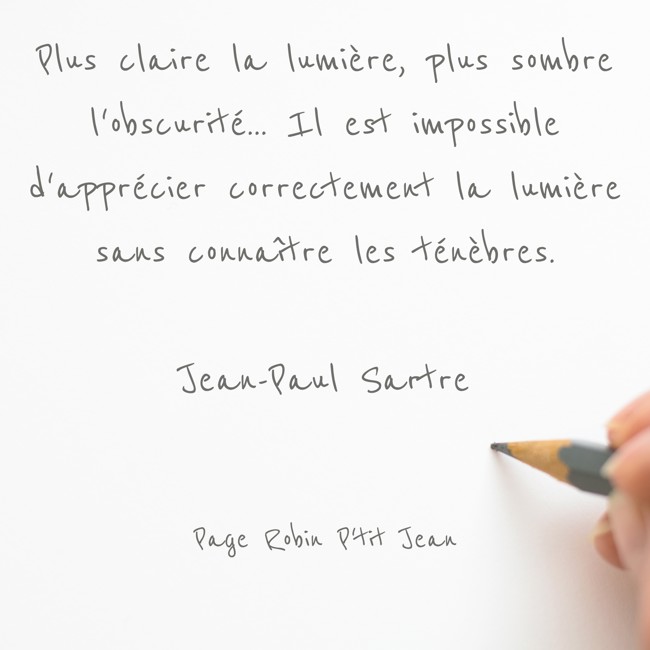 Plus claire la lumière, plus sombre
l'obscurité... Il est impossible
d'apprécier correctement la lumière
sans connaître les ténèbres.
Jean-Paul Sartre
Page Robin P'tit Jean